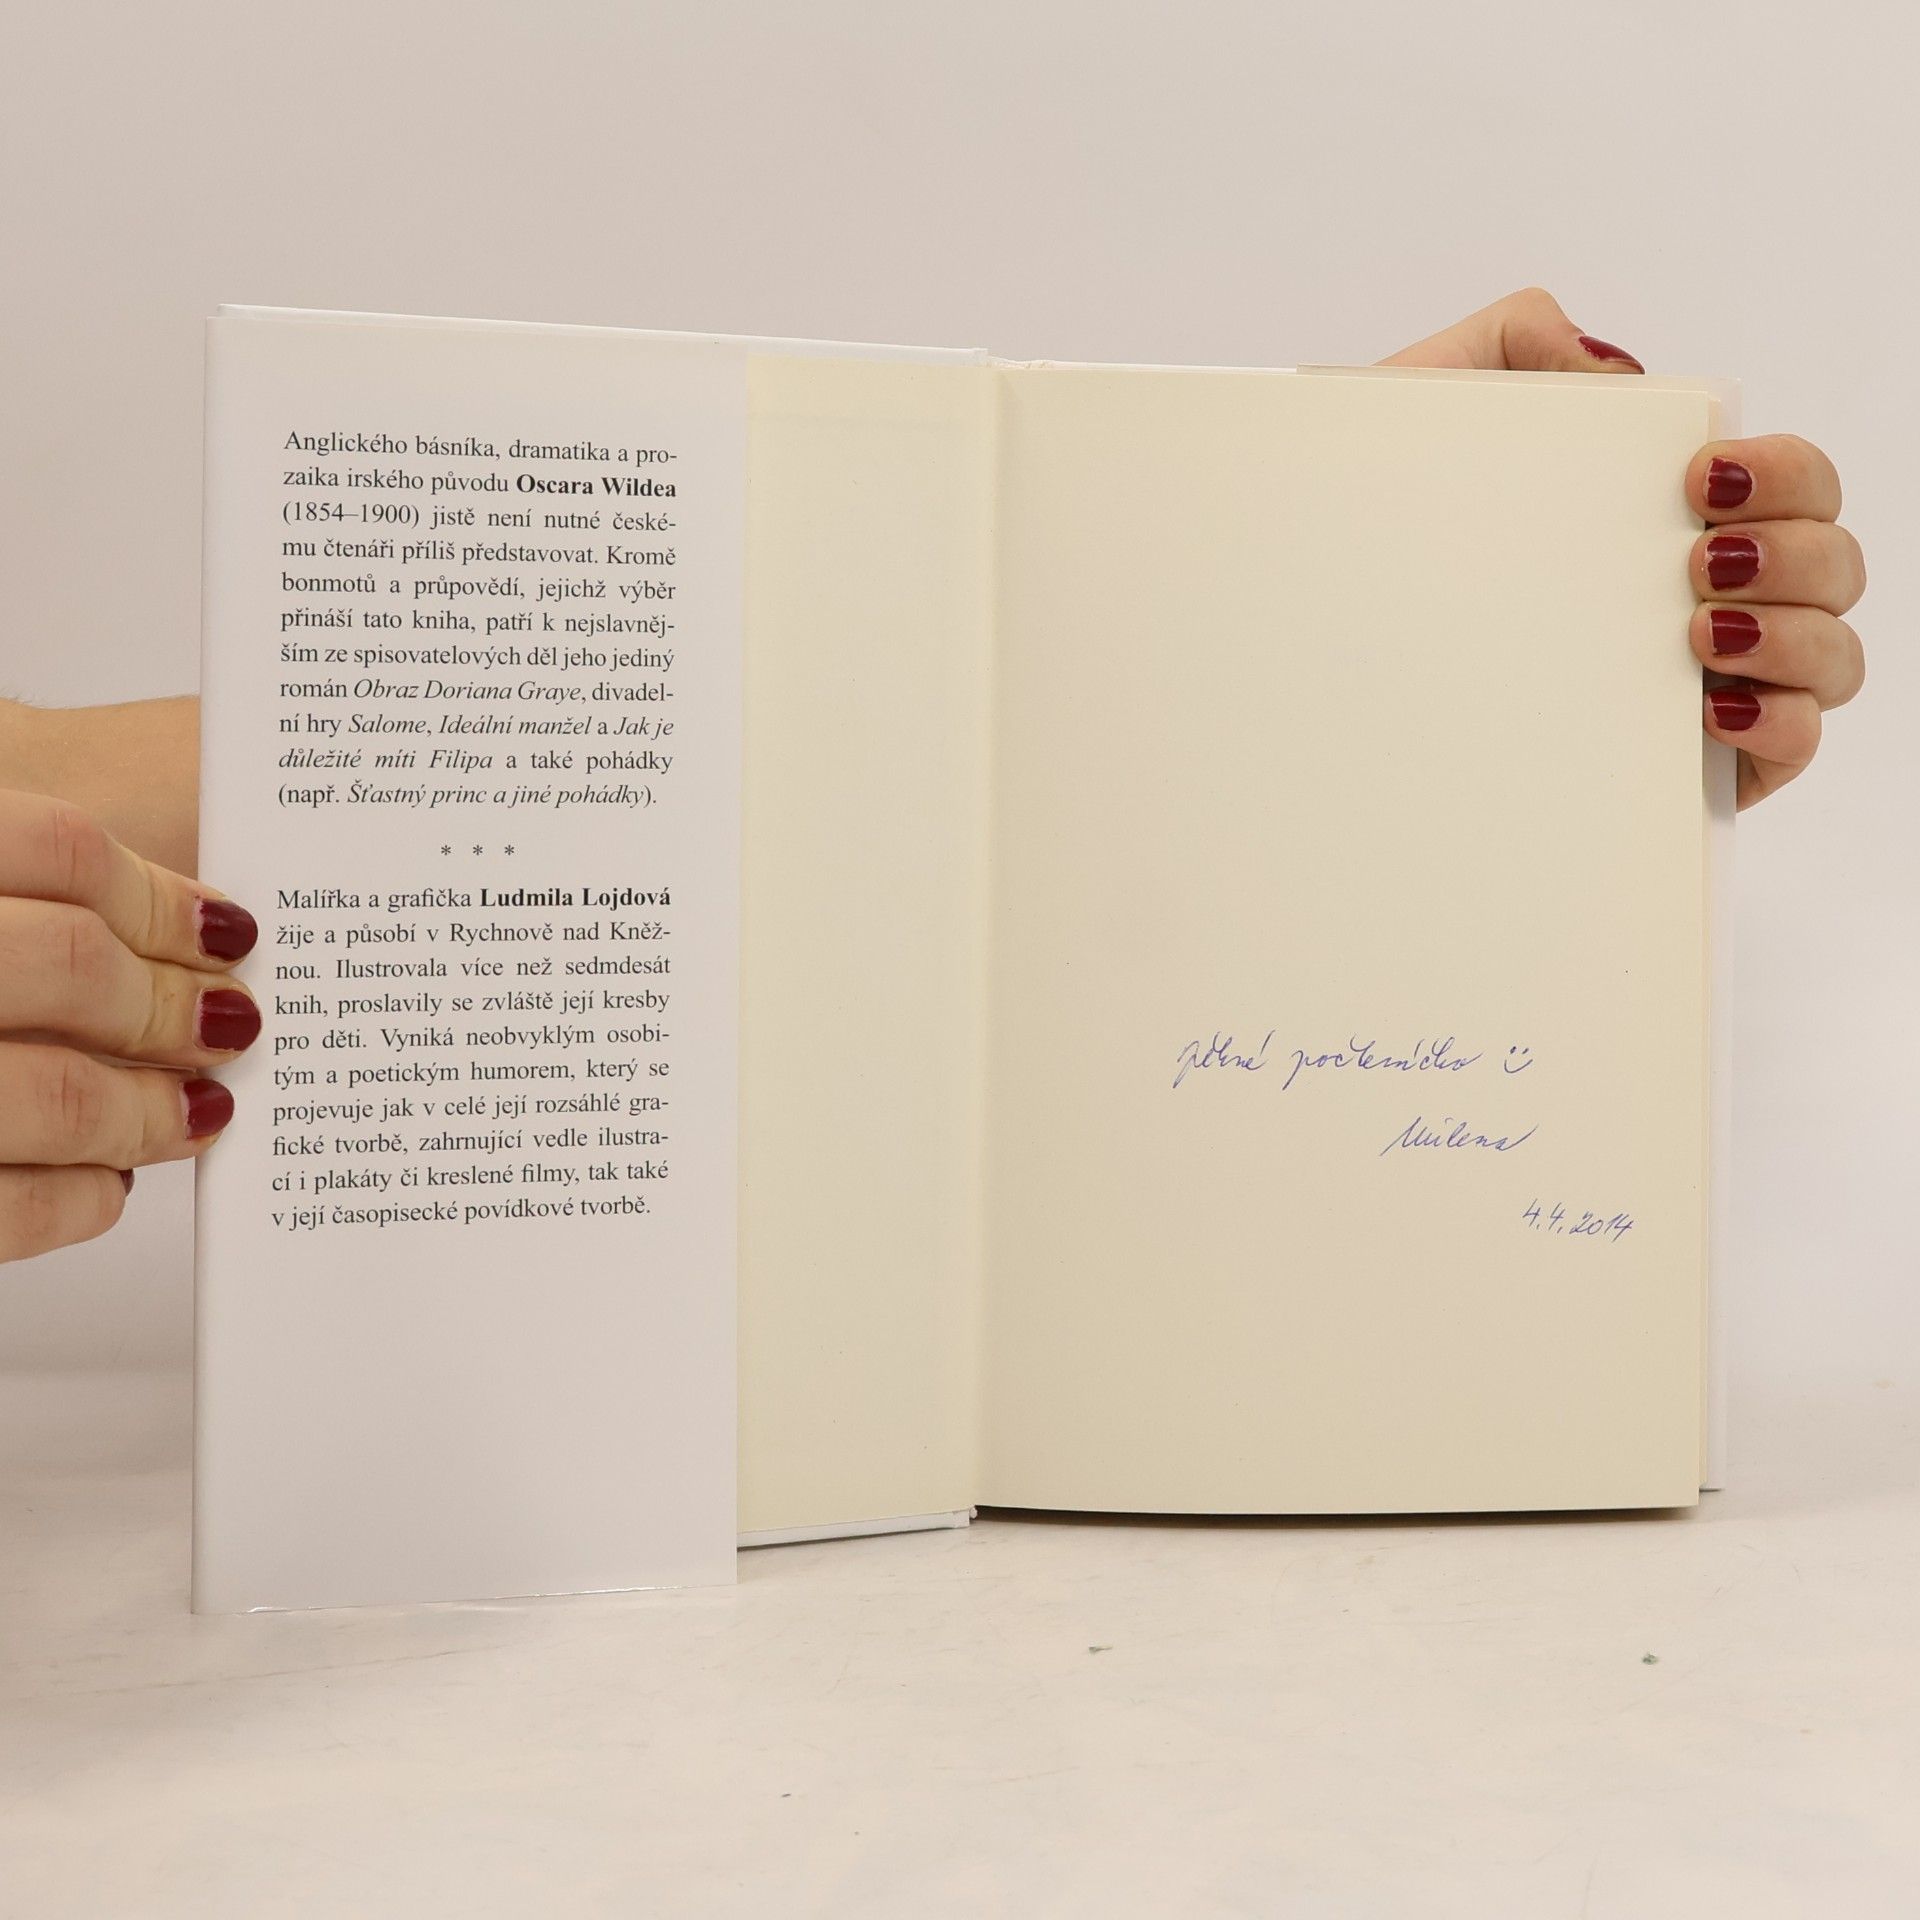 Anglického básníka, dramatika a pro-
zaika irského původu Oscara Wildea
(1854–1900) jistě není nutné české-
mu čtenáři příliš představovat. Kromě
bonmotů a průpovědí, jejichž výběr
přináší tato kniha, patří k nejslavněj-
ším ze spisovatelových děl jeho jediný
román Obraz Doriana Graye, divadel-
ní hry Salome, Ideální manžel a Jak je
důležité míti Filipa a také pohádky
(např. Šťastný princ a jiné pohádky).
* * *
Malířka a grafička Ludmila Lojdová
žije a působí v Rychnově nad Kněž-
nou. Ilustrovala více než sedmdesát
knih, proslavily se zvláště její kresby
pro děti. Vyniká neobvyklým osobi-
tým a poetickým humorem, který se
projevuje jak v celé její rozsáhlé gra-
fické tvorbě, zahrnující vedle ilustra-
cí i plakáty či kreslené filmy, tak také
v její časopisecké povídkové tvorbě.
Pěkné počteníčko
Milena
4.4.2014